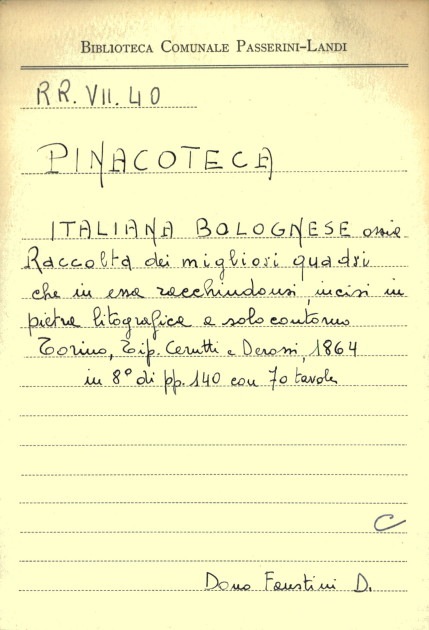 Biblioteca Comunale Passerini-Landi
RR. VII. 40
PINACOTECA
ITALIANA BOLOGNESE ossia
Raccolta dei migliori quadri
che in essa racchiudonsi, incisi in
pietra litografica a solo contorno
Torino, Tip. Cerutti e Derossi, 1864
in 8° di pp. 140 con 70 tavole
C
Dono Faustini D.